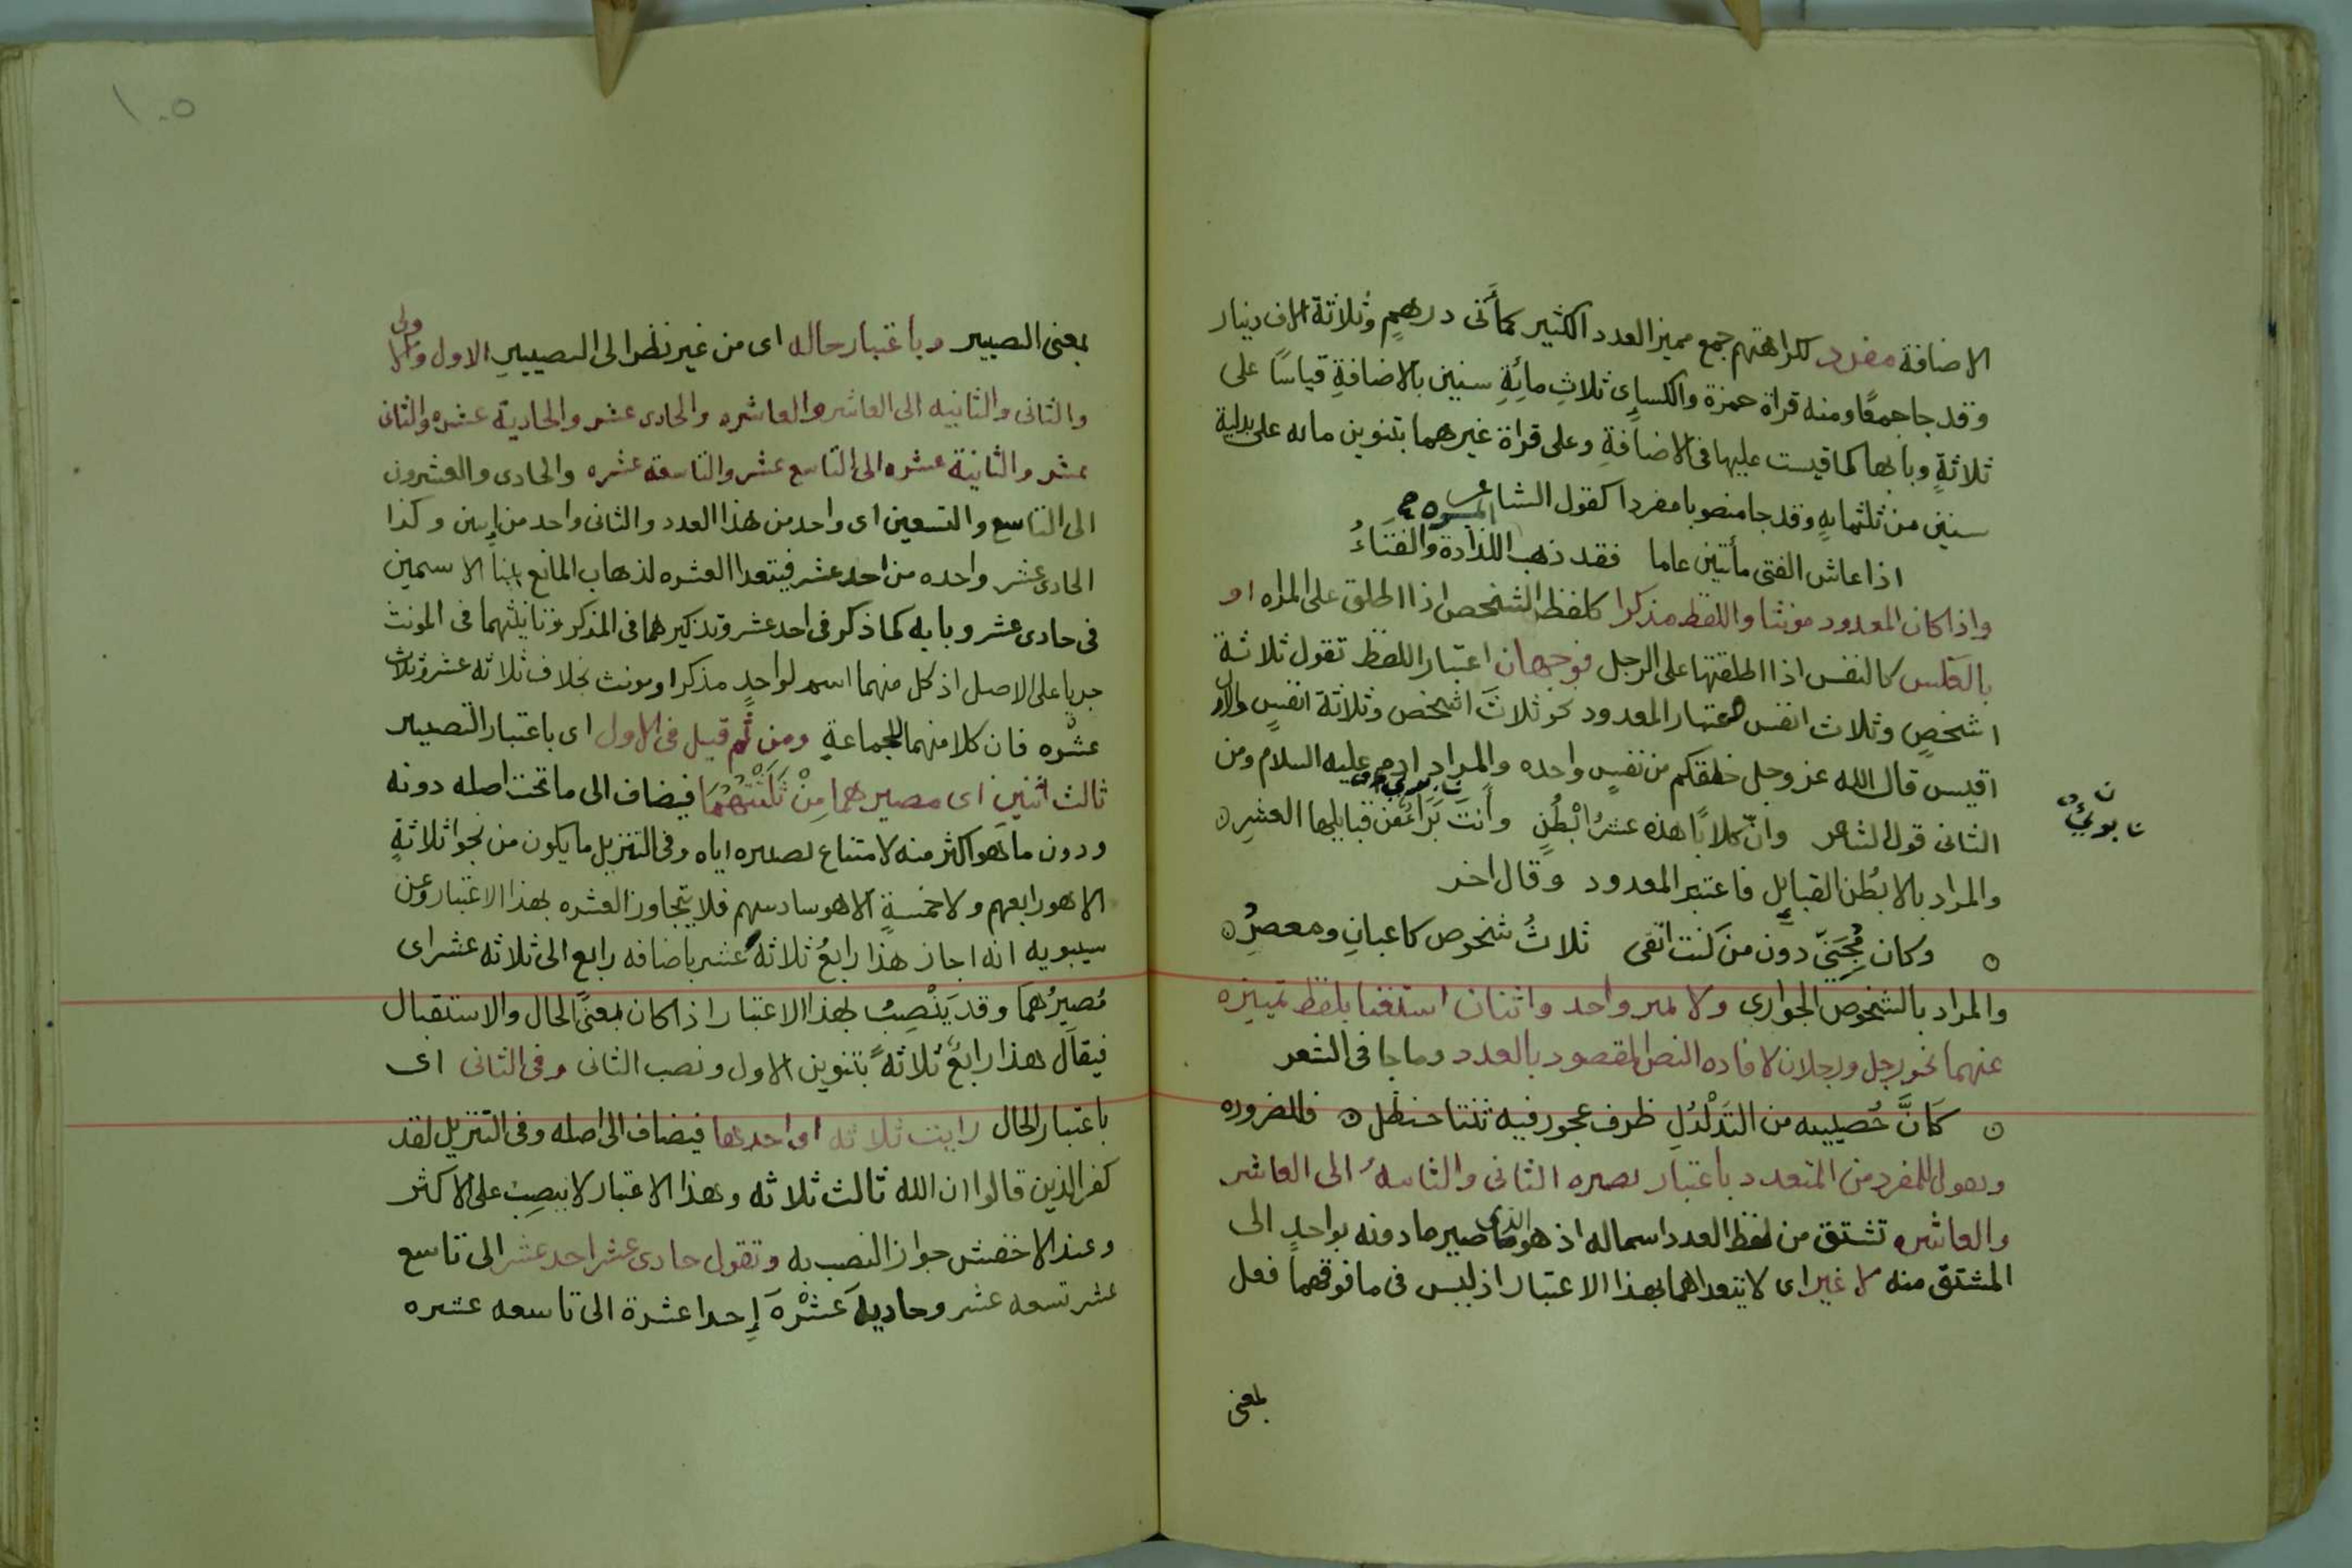 الاضافة مفرد لكراهتهم جمع مميز العدد الكثير كمأتى درهمٍ وثلاثة الاف دينار
وقد جا جمعًا ومنه قراة حمزة والكساىٍ ثلاثِ مائةِ سنين بالاضافةِ قياسًا على
ثلاثةٍ وبابها كما قيست عليها فى الاضافةِ وعلى قراة غيرهما بتنوين مايه على بدلية
سنين من ثلثمايهٍ وقد جا منصوبا مفردا كقول الشاعر
اذا عاش الفتى مأتين عاما فقد ذهب اللذاذة والفتاءُ
واذا كان المعدود مونثا واللفظ مذكرا كلفظ الشخص اذا اطلق على المراه او
بالعكس كالنفس اذا اطلقتها على الرجل فوجهان اعتبار اللفظ تقول ثلاثة
اشخصٍ وثلاث انفس واعتبار المعدود نحو ثلاثَ اشخص وثلاثة انفسٍ والاول
اقيس قال الله عز وجل خلقكم من نفسٍ واحده والمراد ادم عليه السلام ومن
الثانى قول الشاعر وانّ كلابًا هذه عشرُ ابْطُنٍ وأنتَ بَرِائ من قبايلها العشرِ
والمراد بالابطُن القبايل فاعتبر المعدود وقال اخر
وكان مِجَنّى دون من كنت اتقى ثلاثُ شخوص كاعبانِ ومعصرُ
والمراد بالشخوص الجوارى ولا يميز واحد واثنان استغنا بلفظ تمييزه
عنهما نحو رجل ورجلان لافاده النص المقصود بالعدد وما جا فى الشعر
كَانَّ خُصييه من التَدَلْدُلِ ظرف عجوز فيه ثنتا حنظل فللضروره
وتقول للمفرد من المتعدد باعتبار تصيره الثانى والثانيهُ الى العاشر
والعاشره تشتق من لفظ العدد اسما له اذ هو الذى صير ما دونه بواحدٍ الى
المشتق منه لا غير اى لا يتعداهما بهذا الاعتبار اذ ليس فى ما فوقهما فعل
بمعنى
١٠٥
بمعنى التصيير وباعتبار حاله اى من غير نظر الى التصييرِ الاول والاولى
والثانى والثانيه الى العاشر والعاشره والحادى عشر والحادية عشره والثانى
عشر والثانية عشره الى التاسع عشر والتاسعه عشره والحادى والعشرون
الى التاسع والتسعين اى واحد من هذا العدد والثانى واحد من اثنين وكذا
الحادى عشر واحده من احد عشر فيتعدا العشره لذهاب المانع بنا الاسمين
فى حادى عشر وبابه كما ذكر فى احد عشر وتذكيرهما فى المذكر وتانيثهما فى المونث
جريا على الاصل اذ كل منهما اسم لواحدٍ مذكر او مونث بخلاف ثلاثه عشر وثلاث
عشْره فان كلا منهما للجماعةِ ومن ثم قيل فى الاول اى باعتبار التصيير
ثالث اثنين اى مصيرهما مِنْ ثَلَثْتُهُمَا فيضاف الى ما تحت اصله دونه
ودون ما هو اكثر منه لامتناع تصيره اياه وفى التنزيل ما يكون من نجوا ثلاثةٍ
الا هو رابعهم ولا خمسةٍ الا هو سادسهم فلا يتجاوز العشره بهذا الاعتبار وعن
سيبويه انه اجاز هذا رابعُ ثلاثه عشر باضافه رابع الى ثلاثه عشر اى
مُصيرُهما وقد يَنْصِبُ بهذا الاعتبار اذا كان بمعنى الحال والاستقبال
فيقال هذا رابعٌ ثلاثهً بتنوين الاول ونصب الثانى وفى الثانى اى
باعتبار الحال رايت ثلاثه اى احدها فيضاف الى اصله وفى التنزيل لقد
كفر الذين قالوا ان الله ثالث ثلاثه وهذا الاعتبار لا ينصِب على الاكثر
وعند الاخفش جواز النصب به وتقول حادى عشر احد عشر الى تاسع
عشر تسعه عشر وحاديهَ عَشْرَهَ إِحدا عشرة الى تاسعه عشره